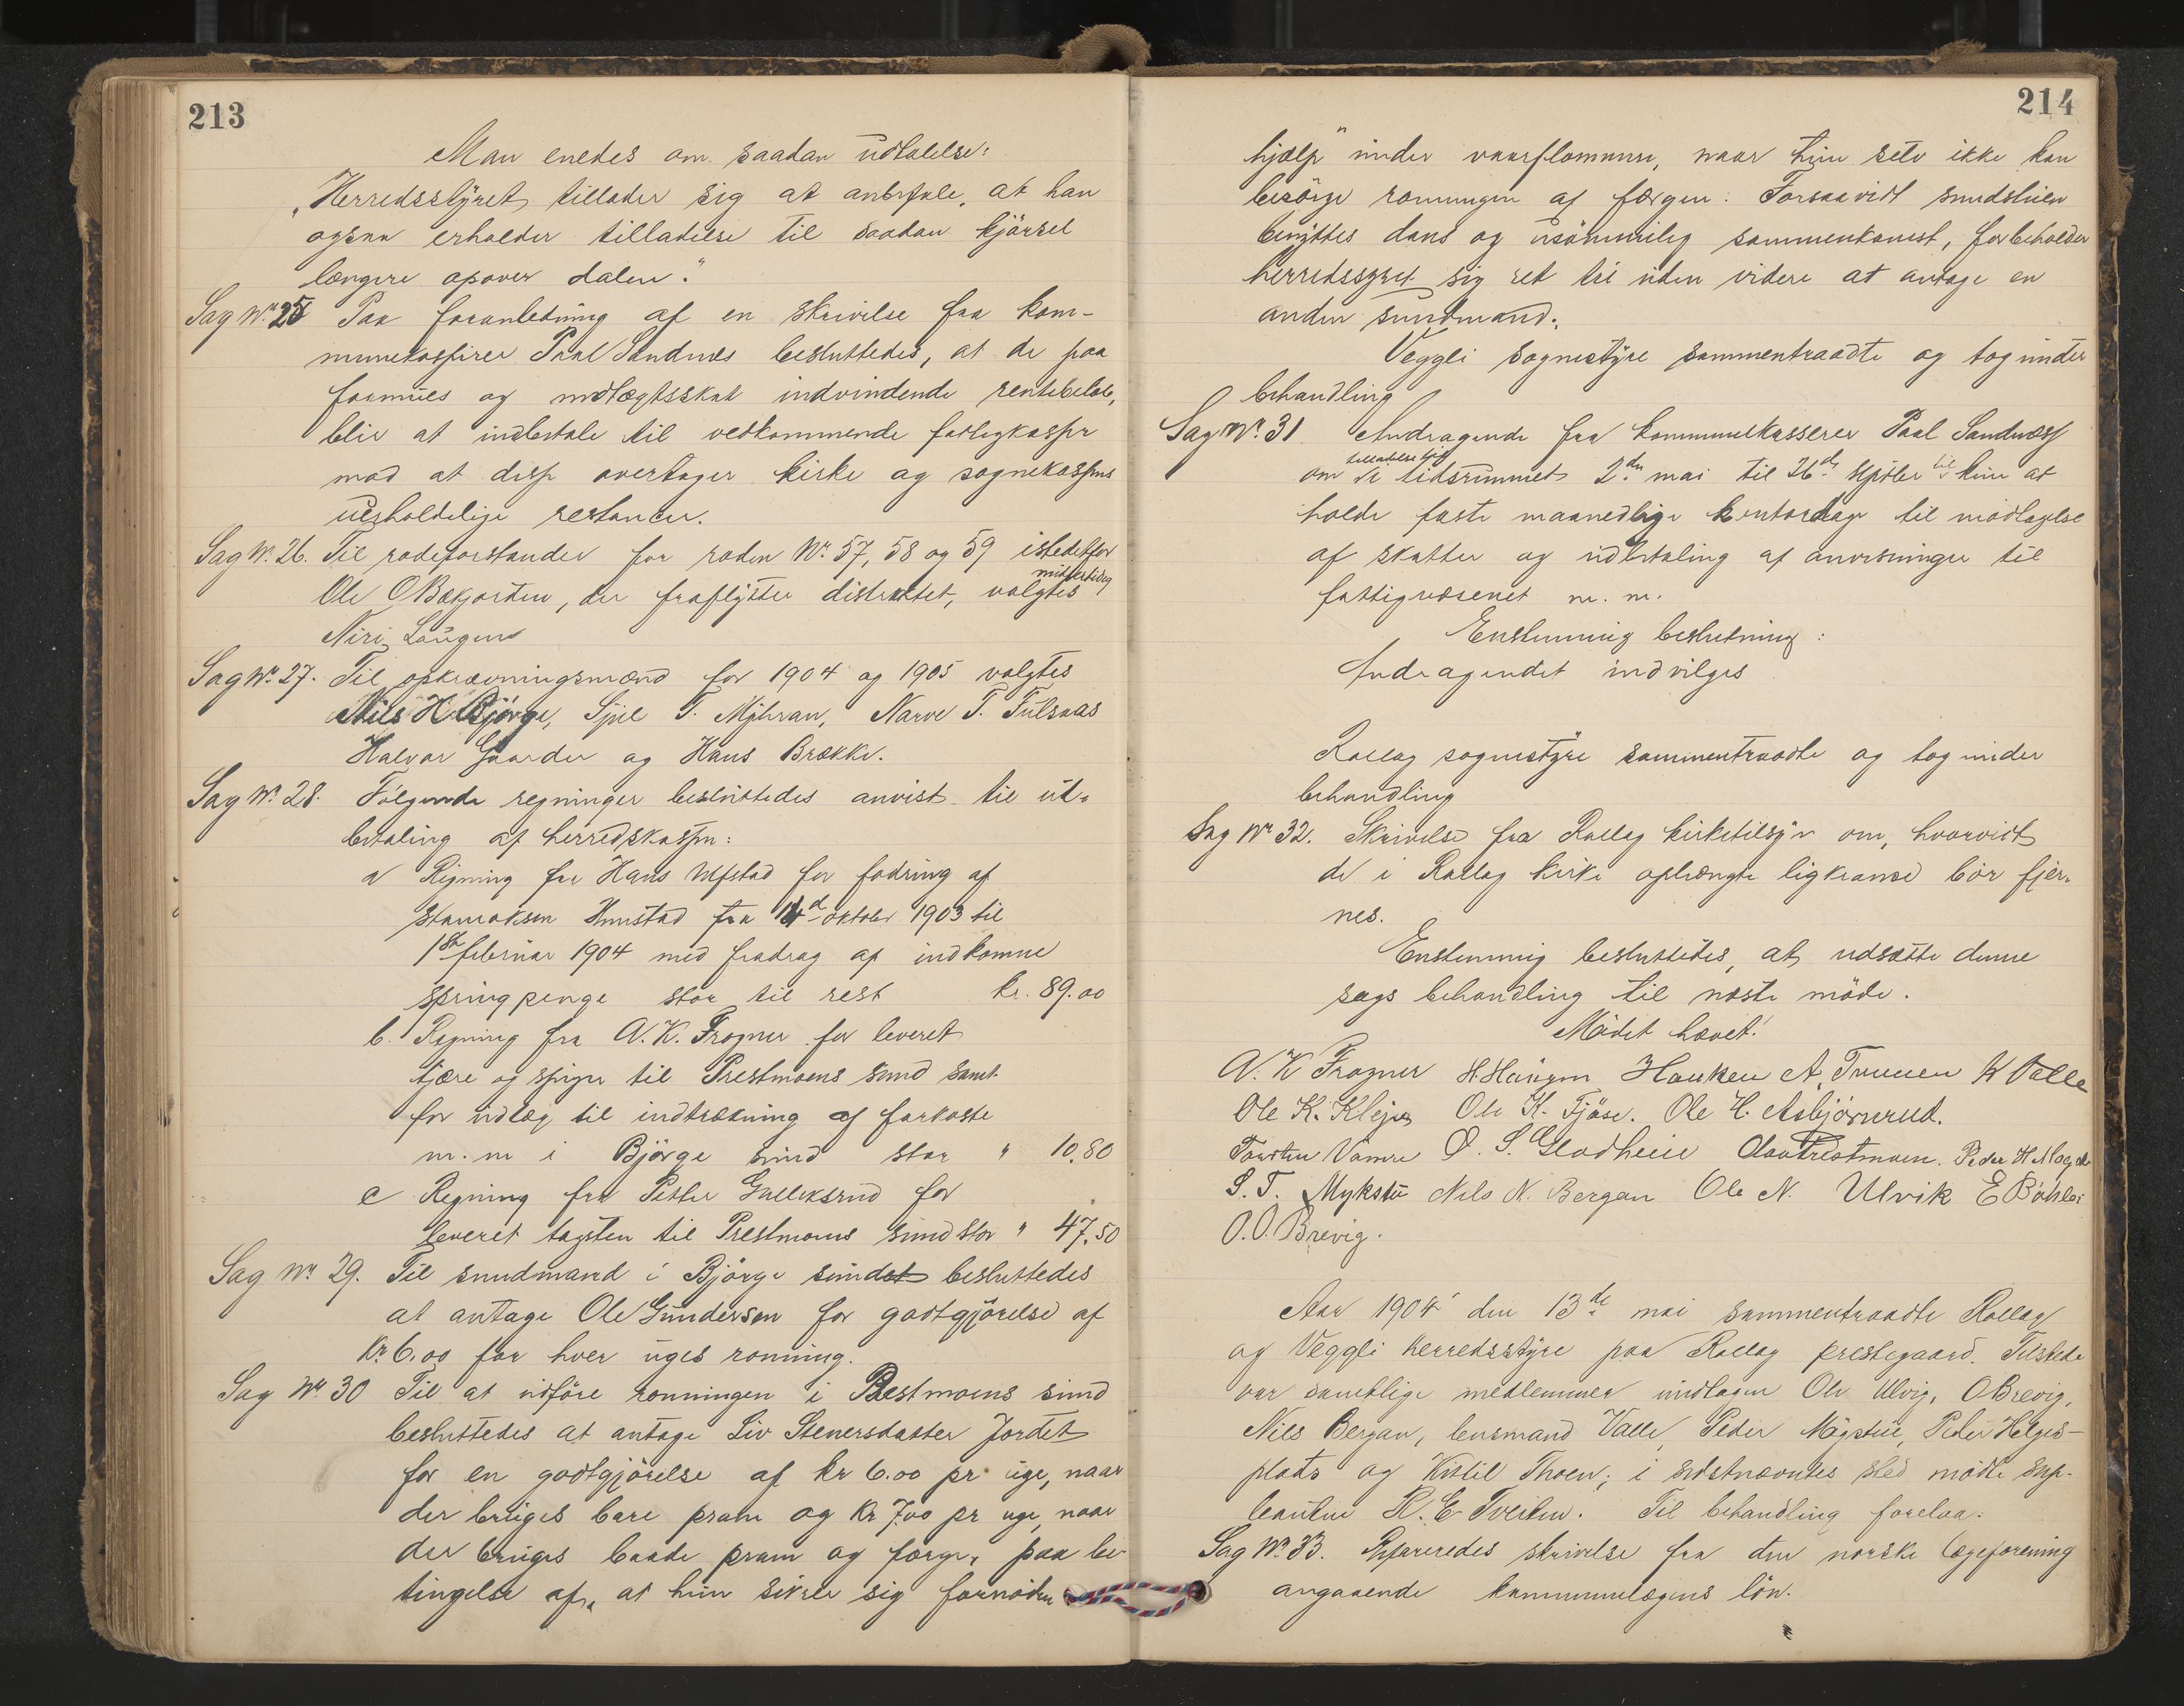 213
Man enedes om saadan udtalelse:
„Herredsstyret tillader sig at anbefale, at han
ogsaa erholder tilladelse til saadan kjörsel
længere opover dalen."
Sag Nr. 25 Paa foranledning af en skrivelse fra kom-
munekasserer Paal Sandnes besluttedes, at de paa
formues og indtægtsskat indvindende rentebeløb,
blir at indbetale til vedkommende fattigkasser
mod at disse overtager kirke og sognekassens
uerholdelige restancer.
Sag Nr. 26. Til rodeforstander for roden Nr. 57, 58 og 59 istedetfor
Ole O Bakjorden, der fraflytter distriktet, valgtes midlertidig
Niri Laugen
Sag Nr. 27. Til opkrævningsmænd for 1904 og 1905 valgtes
Nils H Bjørge, T. Myhran, Narve T. Fulsaas
Halvor Gaarder og Hans Brække.
Sag Nr. 28. Følgende regninger besluttedes anvist til ud-
betaling af herredskassen:
a Regning fra Hans Ulfstad for fodring af
stamoksen fra 14d oktober 1903 til
1ste februar 1904 med fradrag af indkomne
springpenge stor til rest kr. 89.00
b. Regning fra A. K. Frogner for leveret
tjære og spiger til Prestmoens sund samt
for udlæg til indtrækning af farkoste
m. m i Björge sund stor " 10.80
c Regning fra Petter Gulliksrud for
leveret tagsten til Prestmoens sund stor " 47.50
Sag Nr. 29. Til sundmand i Björge sundet besluttedes
at antage Ole Gundersen for godtgjörelse af
Kr 6.00 for hver uges roning.
Sag Nr. 30 Til at udföre roningen i Prestmoens sund
besluttedes at antage Liv Stenersdatter Jordet
for en godtgjörelse af kr 6.00 pr uge, naar
der bruges bare pram og kr 7.00 pr uge, naar
der bruges baade pram og færge, paa be-
tingelse af, at hun sikrer sig fornöden
214
hjælp under vaarflommene, naar hun selv ikke kan
besörge roningen af færgen. Forsaavidt sundstuen
benyttes dans og usömmelig sammenkomst, forbeholder
herredsstyret sig ret til uden videre at antage en
anden sundmand.
Veggli sognestyre sammentraadte og tog under
behandling
Sag Nr. 31 Andragende fra kommunekasserer Paal Sandnæs
om tilladelse til i tidsrummet 2den mai til 26de til kun at
holde faste maanedlige kontordage til modtagelse
af skatter og udbetaling af anvisninger til
fattigvæsenet m. m.
Enstemmig beslutning:
Andragendet indvilges
Rollag sognestyre sammentraadte og tog under
behandling
Sag Nr. 32. Skrivelse fra Rollag kirketilsyn om, hvorvidt
de i Rollag kirke ophængte ligkranse bör fjer-
nes.
Enstemmig besluttedes, at udsætte denne
sags behandling til næste möde.
Mödet hævet!
A. K Frogner H. Haugen A. K Valle
Ole K. Ole K. Fjöse. Ole H. Asbjörnrud.
Torsten Vamre O. S. Gladheim Prestmoen. Peder H
S. T. Mykstu Nils N. Bergan Ole N. Ulvik E Bøhler
O. O. Brevig.
Aar 1904 den 13de mai sammentraadte Rollag
og Veggli herredsstyre paa Rollag prestegaard. Tilstede
var samtlige medlemmer undtagen Ole Ulvig, O Brevig,
Nils Bergan, lensmand Valle, Peder Peder Helges-
plads og Kittil Thoen; i sidstnævntes sted mödte sup-
leanten K. E Tveiten. Til behandling forelaa:
Sag Nr. 33. Refereredes skrivelse fra den norske lægeforening
angaaende kommunelægens lön.